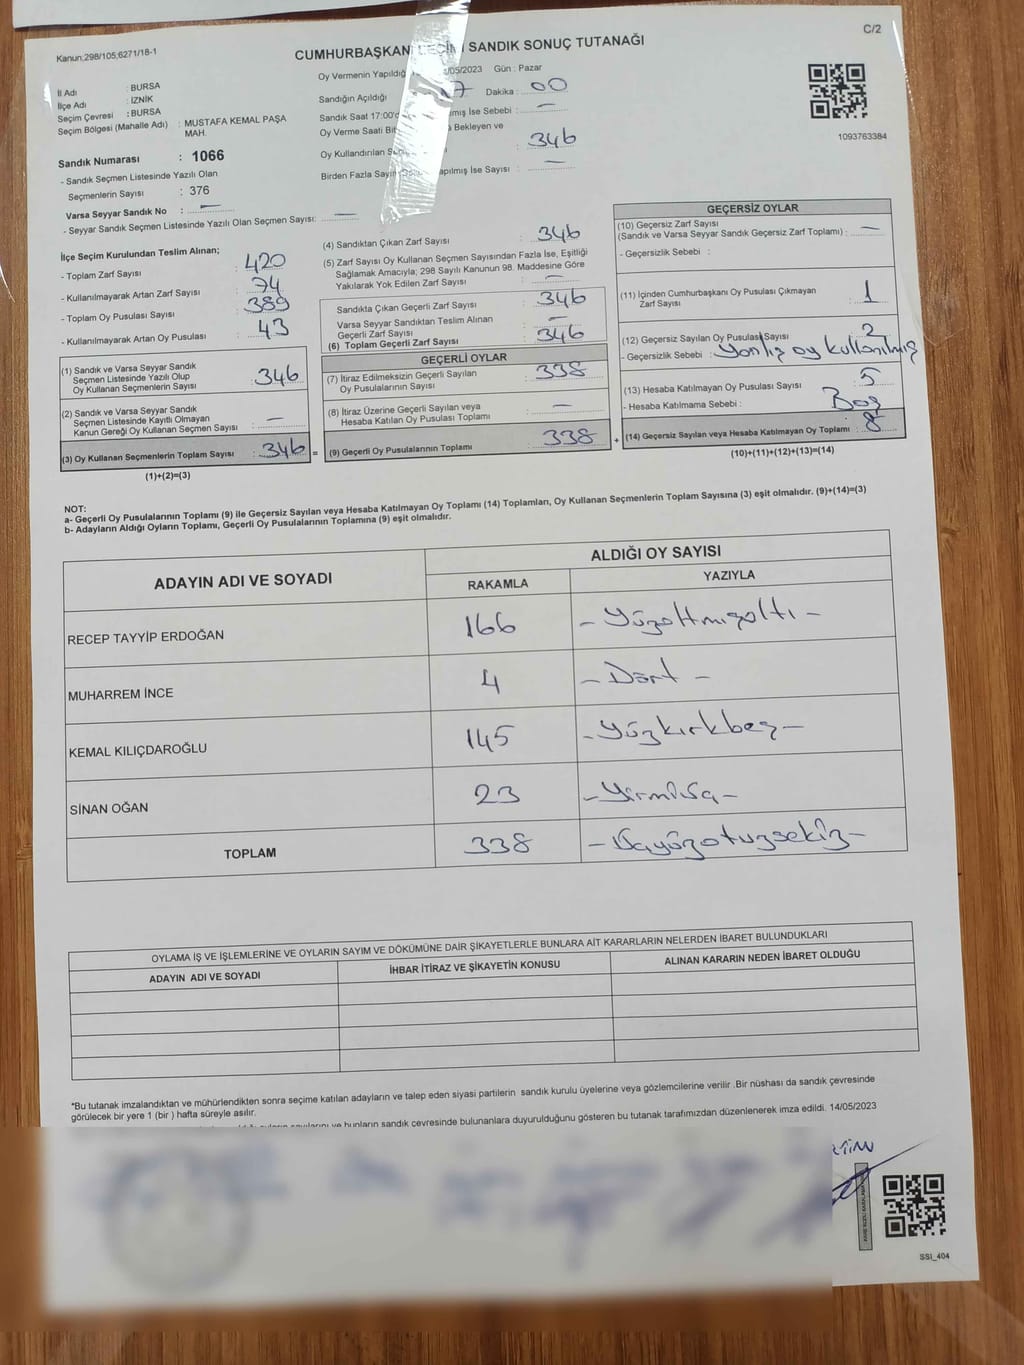 Kanun;298/105;6271/18-1
C/2
CUMHURBAŞKANI SEÇİM SANDIK SONUÇ TUTANAĞI
İl Adı : BURSA
İlçe Adı : İZNİK
Seçim Çevresi : BURSA
Seçim Bölgesi (Mahalle Adı) : MUSTAFA KEMAL PAŞA MAH.
Oy Vermenin Yapıldığı /05/2023 Gün : Pazar
Sandığın Açıldığı 17 Dakika : 00
Sandık Saat 17:00'd mış İse Sebebi : —
Oy Verme Saati Bit Bekleyen ve
Oy Kullandırılan 346
Birden Fazla Sayım apılmış İse Sayısı : —
1093763384
Sandık Numarası : 1066
- Sandık Seçmen Listesinde Yazılı Olan
Seçmenlerin Sayısı : 376
Varsa Seyyar Sandık No : —
- Seyyar Sandık Seçmen Listesinde Yazılı Olan Seçmen Sayısı: —
İlçe Seçim Kurulundan Teslim Alınan;
- Toplam Zarf Sayısı : 420
- Kullanılmayarak Artan Zarf Sayısı : 74
- Toplam Oy Pusulası Sayısı : 389
- Kullanılmayarak Artan Oy Pusulası : 43
(1) Sandık ve Varsa Seyyar Sandık
Seçmen Listesinde Yazılı Olup
Oy Kullanan Seçmenlerin Sayısı : 346
(2) Sandık ve Varsa Seyyar Sandık
Seçmen Listesinde Kayıtlı Olmayan
Kanun Gereği Oy Kullanan Seçmen Sayısı : —
(3) Oy Kullanan Seçmenlerin Toplam Sayısı : 346 =
(1)+(2)=(3)
(4) Sandıktan Çıkan Zarf Sayısı : 346
(5) Zarf Sayısı Oy Kullanan Seçmen Sayısından Fazla İse, Eşitliği
Sağlamak Amacıyla; 298 Sayılı Kanunun 98. Maddesine Göre
Yakılarak Yok Edilen Zarf Sayısı : —
Sandıkta Çıkan Geçerli Zarf Sayısı : 346
Varsa Seyyar Sandıktan Teslim Alınan
Geçerli Zarf Sayısı : —
(6) Toplam Geçerli Zarf Sayısı : 346
GEÇERLİ OYLAR
(7) İtiraz Edilmeksizin Geçerli Sayılan
Oy Pusulalarının Sayısı : 338
(8) İtiraz Üzerine Geçerli Sayılan veya
Hesaba Katılan Oy Pusulası Toplamı : —
(9) Geçerli Oy Pusulalarının Toplamı : 338 +
GEÇERSİZ OYLAR
(10) Geçersiz Zarf Sayısı
(Sandık ve Varsa Seyyar Sandık Geçersiz Zarf Toplamı) : —
- Geçersizlik Sebebi :
(11) İçinden Cumhurbaşkanı Oy Pusulası Çıkmayan
Zarf Sayısı : 1
(12) Geçersiz Sayılan Oy Pusulası Sayısı : 2
- Geçersizlik Sebebi : Yanlış oy kullanılmış
(13) Hesaba Katılmayan Oy Pusulası Sayısı : 5
- Hesaba Katılmama Sebebi : Boş
(14) Geçersiz Sayılan veya Hesaba Katılmayan Oy Toplamı : 8
(10)+(11)+(12)+(13)=(14)
NOT:
a- Geçerli Oy Pusulalarının Toplamı (9) ile Geçersiz Sayılan veya Hesaba Katılmayan Oy Toplamı (14) Toplamları, Oy Kullanan Seçmenlerin Toplam Sayısına (3) eşit olmalıdır. (9)+(14)=(3)
b- Adayların Aldığı Oyların Toplamı, Geçerli Oy Pusulalarının Toplamına (9) eşit olmalıdır.
ADAYIN ADI VE SOYADI
ALDIĞI OY SAYISI
RAKAMLA YAZIYLA
RECEP TAYYİP ERDOĞAN 166 – Yüzaltmışaltı –
MUHARREM İNCE 4 – Dört –
KEMAL KILIÇDAROĞLU 145 – Yüzkırkbeş –
SİNAN OĞAN 23 – Yirmiüç –
TOPLAM 338 – Üçyüzotuzsekiz –
OYLAMA İŞ VE İŞLEMLERİNE VE OYLARIN SAYIM VE DÖKÜMÜNE DAİR ŞİKAYETLERLE BUNLARA AİT KARARLARIN NELERDEN İBARET BULUNDUKLARI
ADAYIN ADI VE SOYADI
İHBAR İTİRAZ VE ŞİKAYETİN KONUSU
ALINAN KARARIN NEDEN İBARET OLDUĞU
*Bu tutanak imzalandıktan ve mühürlendikten sonra seçime katılan adayların ve talep eden siyasi partilerin sandık kurulu üyelerine veya gözlemcilerine verilir .Bir nüshası da sandık çevresinde
görülecek bir yere 1 (bir ) hafta süreyle asılır.
ve bunların sandık çevresinde bulunanlara duyurulduğunu gösteren bu tutanak tarafımızdan düzenlenerek imza edildi. 14/05/2023
SSI_404